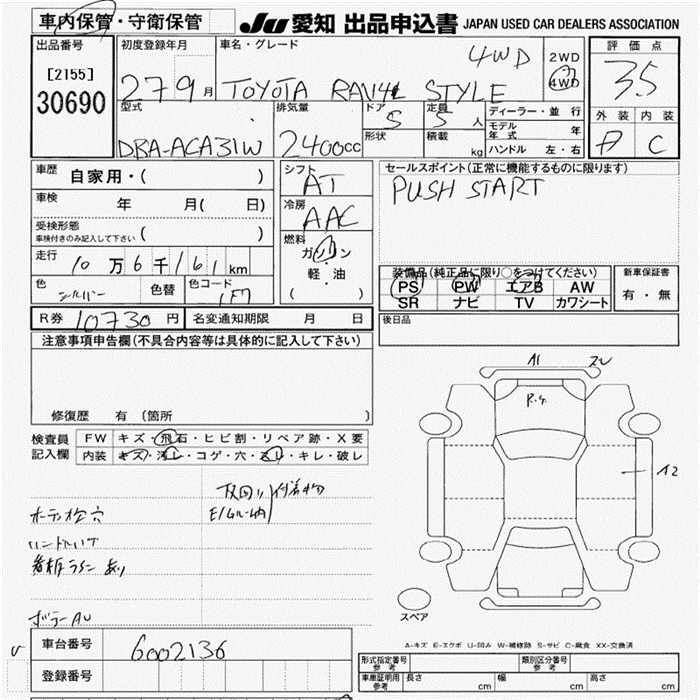 車内保管・守衛保管
JU 愛知 出品申込書 JAPAN USED CAR DEALERS ASSOCIATION
出品番号
[2155]
30690
初度登録年月
27 9月
車名・グレード
4WD
TOYOTA RAV4L STYLE
2WD
4WD
評価点
3.5
外装 内装
C
型式
DBA-ACA31W
排気量
2400cc
ドア
5
形状
定員
5人
積載
kg
ディーラー・並行
モデル年式 年
ハンドル 左・右
車歴 自家用・( )
車検 年 月( 日)
受検形態
車検付きのみ記入して下さい ( )
走行 10万6千161km
色 シルバー 色替 色コード 1F7
シフト
AT
冷房
AAC
燃料
ガソリン
軽・油
( )
セールスポイント(正常に機能するものに限ります)
PUSH START
装備品(純正品に限り○をつけてください)
PS PW エアB AW
SR ナビ TV カワシート
新車保証書
有・無
R券 10730円 名変通知期限 月 日
後日品
注意事項申告欄(不具合内容等は具体的に記入して下さい)
修復歴 有 (箇所 )
検査員
記入欄
FW キズ・飛石・ヒビ割・リペア跡・X要
内装 キズ・汚レ・コゲ・穴・スレ・キレ・破レ
A1
A2
スペア
A-キズ E-エクボ U-凹み W-補修跡 S-サビ C-腐食 XX-交換済
車台番号 6002136
登録番号
形式指定番号
参考
類別区分番号
参考
車庫証明用
参考
長さ cm 幅 cm 高さ cm